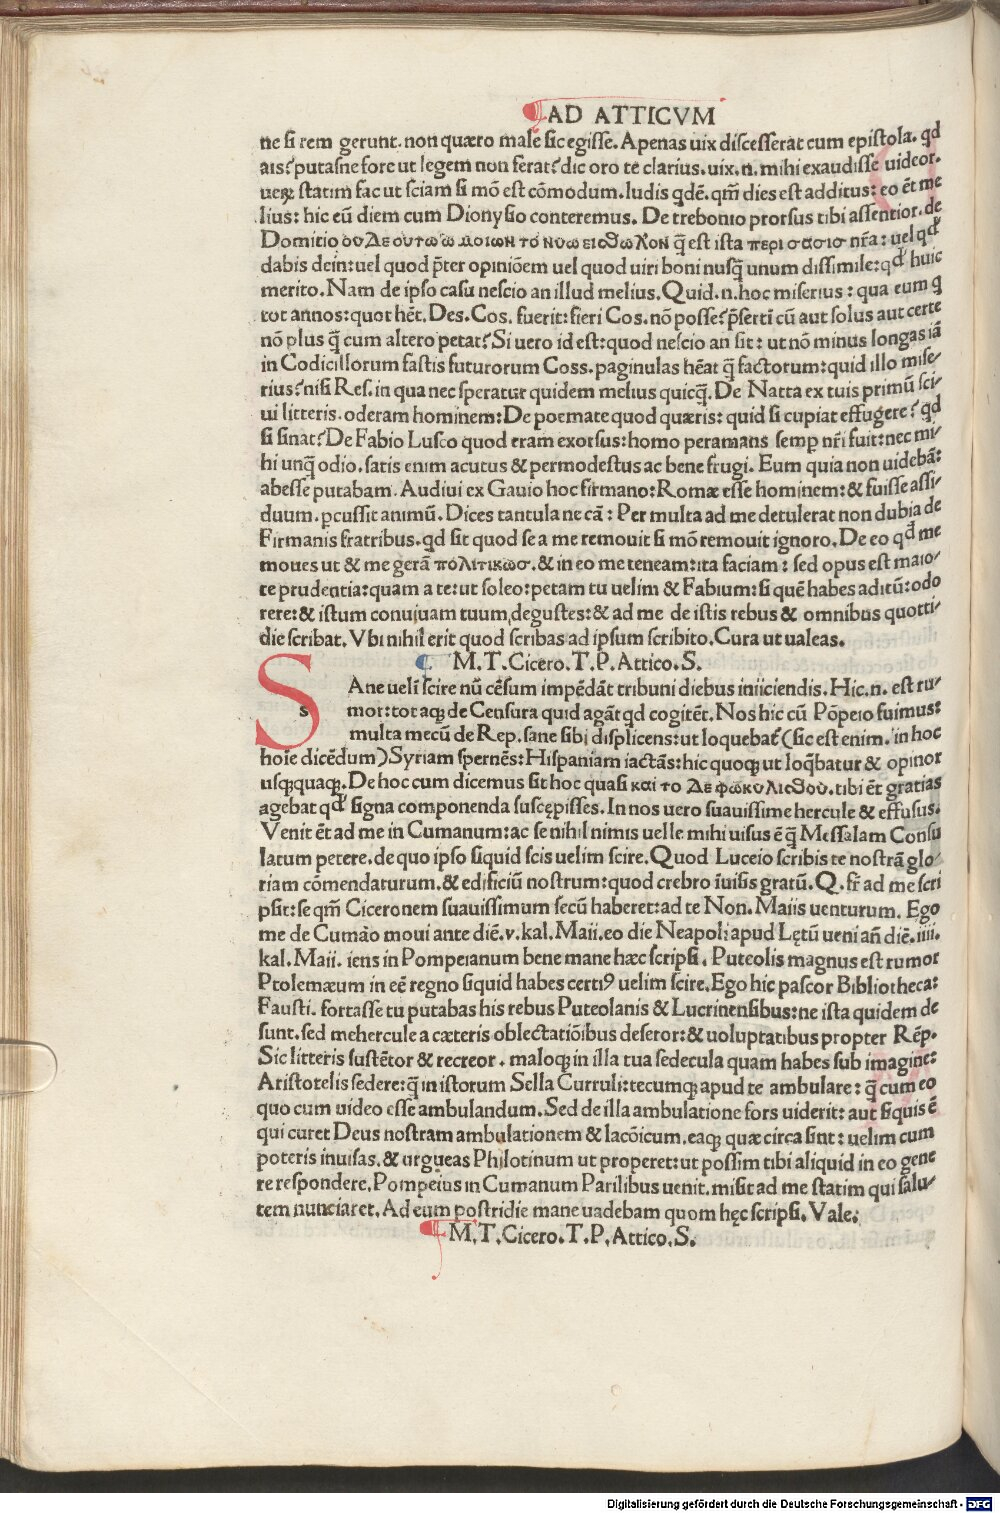 AD ATTICVM
ne si rem gerunt. non quæro male sic egisse. Apenas uix discesserat cum epistola. qd
ais? putasne fore ut legem non ferat? dic oro te clarius. uix. n. mihi exaudisse uideor.
ueꝝ statim fac ut sciam si mō est cōmodum. ludis qdē. qm̄ dies est additus: eo ēt me
lius: hic eū diem cum Dionysio conteremus. De trebonio prorsus tibi assentior. de
Domitio ου Δε ουτω ω μοιων το νυω ειϑωλον q̄ est ista περι σασισ nr̄a: uel qd
dabis dein: uel quod p̄ter opiniōem uel quod uiri boni nusq̄ unum dissimile: qd huic
merito. Nam de ipso casu nescio an illud melius. Quid. n. hoc miserius: qua eum q
tot annos: quot hēt. Des. Cos. fuerit: fieri Cos. nō posse? p̄sertī cū aut solus aut certe
nō plus q̄ cum altero petat? Si uero id est: quod nescio an sit: ut nō minus longas iā
in Codicillorum fastis futurorum Coss. paginulas hēat q̄ factorum: quid illo mise/
rius? nisi Res. in qua nec speratur quidem melius quicq̄. De Natta ex tuis primū sci/
ui litteris. oderam hominem: De poemate quod quæris: quid si cupiat effugere? qd
si sinat? De Fabio Lusco quod eram exorsus: homo peramans semp̱ nr̄i fuit: nec mi/
hi unq̄ odio. satis enim acutus & permodestus ac bene frugi. Eum quia non uidebā:
abesse putabam. Audiui ex Gauio hoc firmano: Romæ esse hominem: & fuisse assi/
duum. p̱cussit animū. Dices tantula ne cā: Per multa ad me detulerat non dubia de
Firmanis fratribus. qd sit quod se a me remouit si mō remouit ignoro. De eo qd me
moues ut & me gerā πολιτικωσ. & in eo me teneam: ita faciam: sed opus est maio/
re prudentia: quam a te: ut soleo: petam tu uelim & Fabium: si quē habes aditū: odo
rere: & istum conuiuam tuum degustes: & ad me de istis rebus & omnibus quotti/
die scribat. Vbi nihil erit quod scribas ad ipsum scribito. Cura ut ualeas.
M. T. Cicero. T. P. Attico. S.
S Ane uelī scire nū cēsum impēdāt tribuni diebus iniiciendis. Hic. n. est ru/
s mor: tot aqꝫ de Censura quid agāt qd cogitēt. Nos hic cū Pōpeio fuimus:
multa mecū de Rep. sane sibi displicens: ut loquebat᷑ (sic est enim. in hoc
hoīe dicēdum) Syriam spernēs: Hispaniam iactās: hic quoqꝫ ut loq̄batur & opinor
usqꝫquaqꝫ. De hoc cum dicemus sit hoc quasi και το Δε φωκυλιϑου. tibi ēt gratias
agebat qd signa componenda suscępisses. In nos uero suauissime hercule & effusus.
Venit ēt ad me in Cumanum: ac se nihil nimis uelle mihi uisus ē q̄ Messalam Consu
latum petere. de quo ipso siquid scis uelim scire. Quod Luceio scribis te nostrā glo/
riam cōmendaturum. & edificiū nostrum: quod crebro īuisis gratū. Q. fr̄ ad me scri
psit: se qm̄ Ciceronem suauissimum secū haberet: ad te Non. Maiis uenturum. Ego
me de Cumāo moui ante diē. v. kal. Maii. eo die Neapoli apud Lętū ueni an̄ diē. iiii.
kal. Maii. iens in Pompeianum bene mane hæc scripsi. Puteolis magnus est rumor
Ptolemæum in eē regno siquid habes certiꝰ uelim scire. Ego hic pascor Bibliotheca:
Fausti. fortasse tu putabas his rebus Puteolanis & Lucrinensibus: ne ista quidem de
sunt. sed mehercule a cæteris oblectatiōibus deseror: & uoluptatibus propter Rēp.
Sic litteris sustētor & recreor. maloqꝫ in illa tua sedecula quam habes sub imagine:
Aristotelis sedere: q̄ in istorum Sella Curruli: tecumqꝫ apud te ambulare: q̄ cum eo
quo cum uideo esse ambulandum. Sed de illa ambulatione fors uiderit: aut siquis ē
qui curet Deus nostram ambulationem & lacōicum. eaqꝫ quæ circa sint: uelim cum
poteris inuisas. & urgueas Philotinum ut properet: ut possim tibi aliquid in eo gene
re respondere. Pompeius in Cumanum Parilibus uenit. misit ad me statim qui salu/
tem nunciaret. Ad eum postridie mane uadebam quom hęc scripsi. Vale:
M. T. Cicero. T. P. Attico. S.
Digitalisierung gefördert durch die Deutsche Forschungsgemeinschaft - DFG